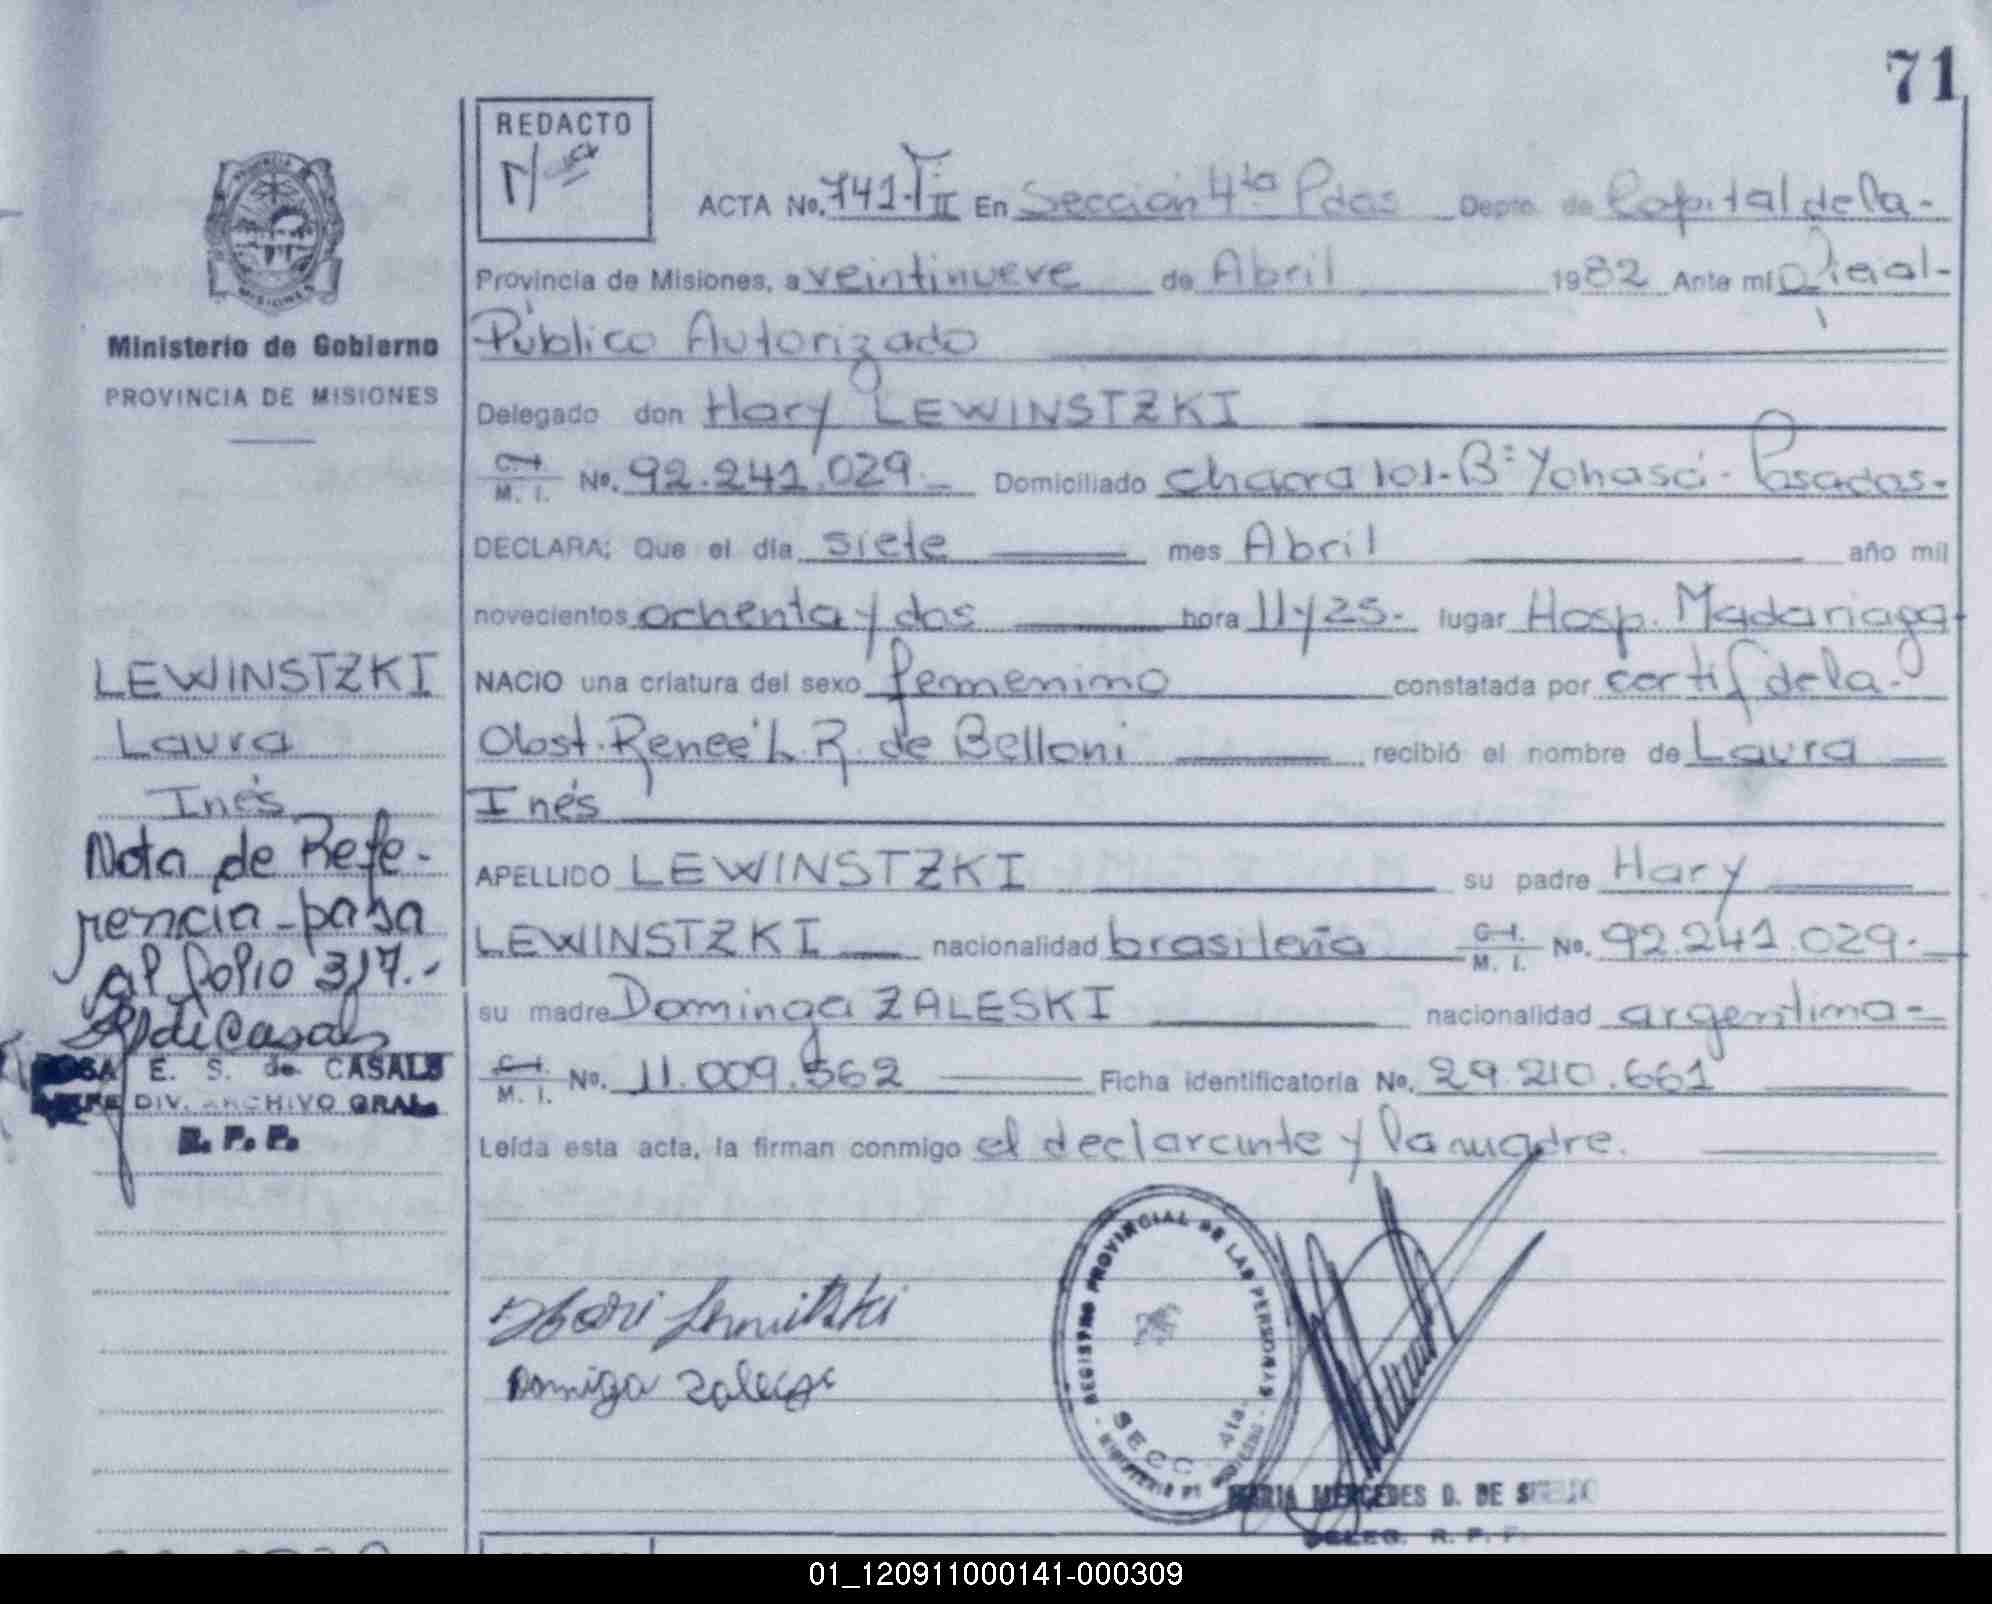 71
REDACTO
PROVINCIA
MISIONES
Ministerio de Gobierno
PROVINCIA DE MISIONES
ACTA No. 741-T II En Sección 4ta Pdas Depto. de Capital de la-
Provincia de Misiones, a veintinueve de Abril 1982 Ante mi Oficial-
Público Autorizado
Delegado don Hary LEWINSTZKI
C. I. M. I. No. 92.241.029.- Domiciliado chacra 101-Bº Yohasá- Posadas-
DECLARA: Que el día siete mes Abril año mil
novecientos ochenta y dos hora 11y25- lugar Hosp. Madariaga
NACIO una criatura del sexo femenino constatada por certif de la-
Obst. Reneé L. R. de Belloni recibió el nombre de Laura
Inés
APELLIDO LEWINSTZKI su padre Hary
LEWINSTZKI nacionalidad brasileña C. I. M. I. No. 92.241.029.-
su madre Dominga ZALESKI nacionalidad argentina-
C. I. M. I. No. 11.009.562 Ficha identificatoria No. 29.210.661
Leída esta acta, la firman conmigo el declarante y la madre.
LEWINSTZKI
Laura
Inés
Nota de Refe-
rencia-pasa
al folio 317.-
ROSA E. S. de CASALS
JEFE DIV. ARCHIVO GRAL.
R. P. P.
Domiga
REGISTRO PROVINCIAL DE LAS PERSONAS
SECC 4ta.
MINISTERIO DE GOBIERNO
MARIA MERCEDES D. DE
DELEG. R. P. P.
01_120911000141-000309